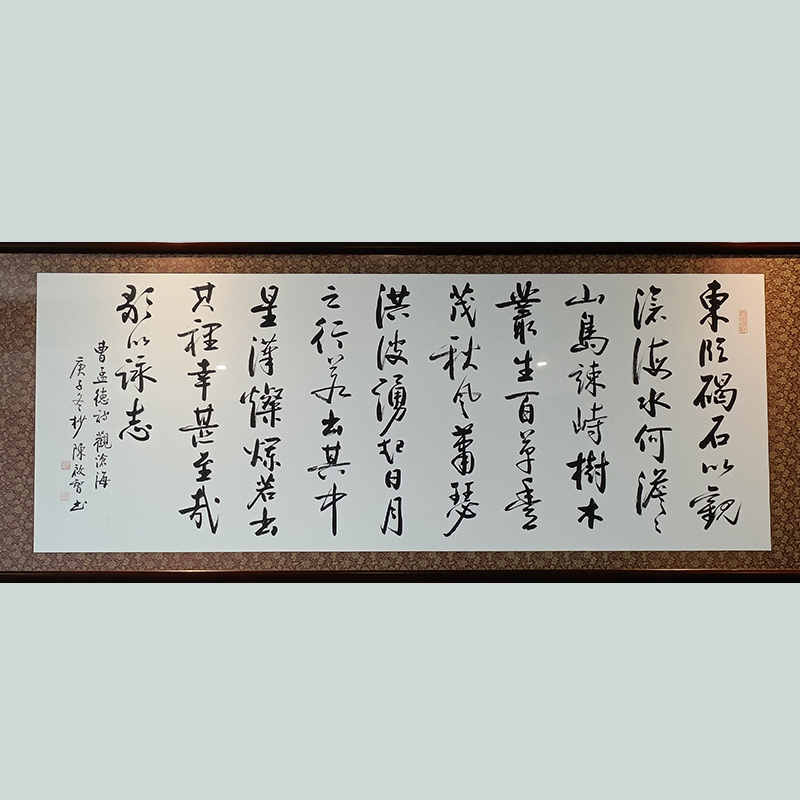 東臨碣石以觀
滄海水何澹〻
山島竦峙樹木
叢生百草豊
茂秋風蕭瑟
洪波湧起日月
之行若出其中
星漢燦爛若出
其裡幸甚至哉
歌以詠志
曹孟德詩觀滄海
庚子冬杪陳啟智书